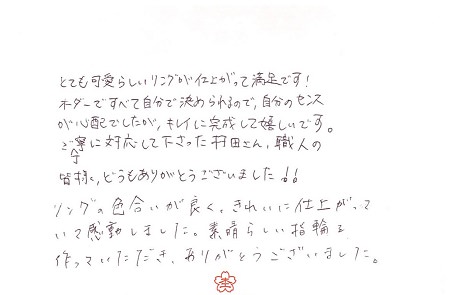 とても可愛らしいリングが仕上がって満足です!
オーダーですべて自分で決められるので、自分のセンス
が心配でしたが、キレイに完成して嬉しいです。
ご丁寧に対応して下さった村田さん、職人の
皆様、どうもありがとうございました!!
リングの色合いが良く、きれいに仕上がって
いて感動しました。素晴らしい指輪を
作っていただき、ありがとうございました。